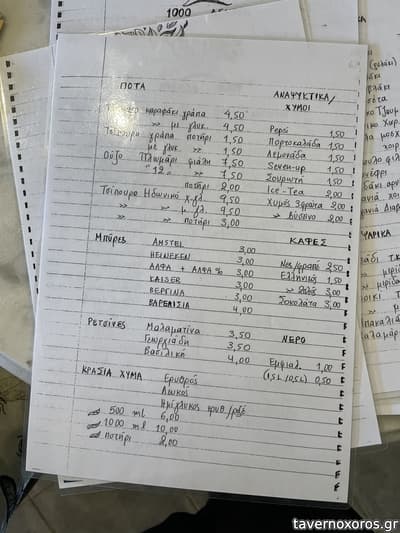 1000
ΠΟΤΑ
ΑΝΑΨΥΚΤΙΚΑ/
ΧΥΜΟΙ
Τσίπουρο καραφάκι γράπα 4,50
» με γλυκ. 4,50
Τσίπουρο γράπα ποτήρι 1,50
με γλυκ » 1,50
Ούζο Πλωμάρι φιάλη 7,50
"12" » 7,50
ποτήρι 2,00
Τσίπουρο Ηδωνικό χ.γλ. 9,50
» » μ.γλ. 9,50
» » ποτήρι 3,00
Pepsi 1,50
Πορτοκαλάδα 1,50
Λεμονάδα 1,50
Seven-up 1,50
Σουρωτή 1,50
Ice-Tea 2,00
Χυμός 2,00
» Βύσσινο 2,00
Μπύρες AMSTEL 3,00
HEINEKEN 3,00
ΑΛΦΑ + ΑΛΦΑ % 3,00
KAISER 3,00
ΒΕΡΓΙΝΑ 3,00
ΒΑΡΕΛΙΣΙΑ 4,00
ΚΑΦΕΣ
Νες/φραπέ 2,50
Ελληνικός 1,50
» 3,00
Σοκολάτα 3,00
Ρετσίνες Μαλαματίνα 3,50
Γεωργιάδη 3,50
Βασιλική 4,00
ΝΕΡΟ
Εμφιαλ. 1,00
(1,5L/0,5L) 0,50
ΚΡΑΣΙΑ ΧΥΜΑ Ερυθρός
Λευκός
Ημίγλυκος ερυθ/ροζέ
500 ml 6,00
1000 ml 10,00
ποτήρι 2,00
tavernoxoros.gr